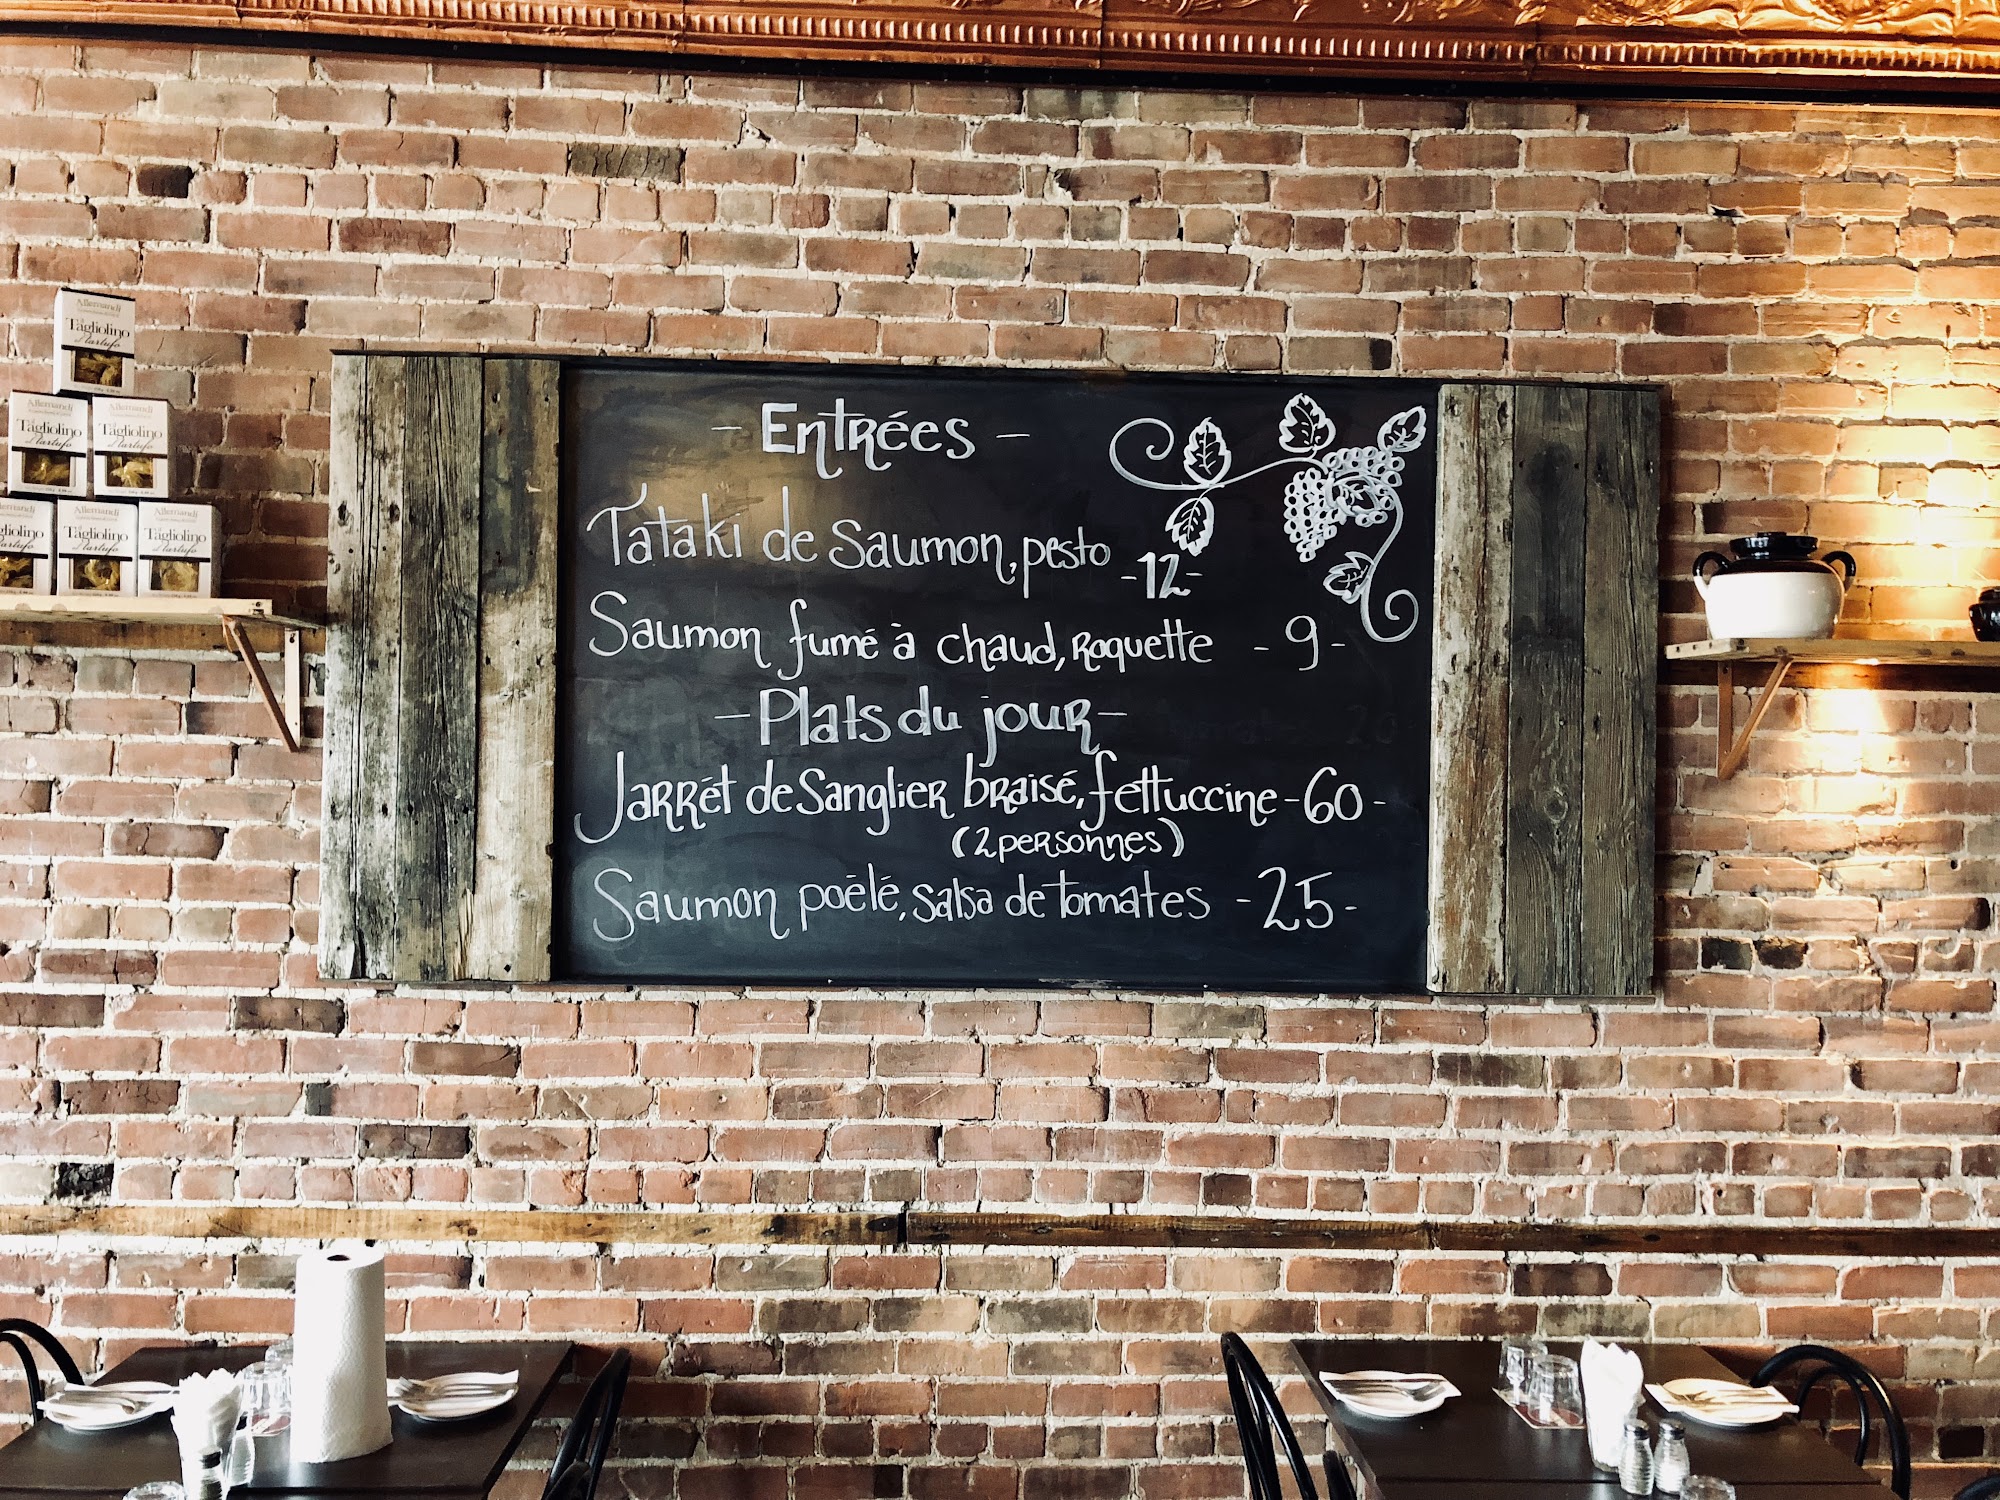 - Entrées -
Tataki de saumon, pesto -12-
Saumon fumé à chaud, roquette - 9 -
- Plats du jour -
Jarrét de sanglier braisé, fettuccine - 60 -
(2 personnes)
Saumon poêlé, salsa de tomates - 25 -
Allemandi
Tagliolino
al tartufo
Allemandi
Tagliolino
al tartufo
Allemandi
Tagliolino
al tartufo
Tagliolino
tartufo
Allemandi
Tagliolino
al tartufo
Allemandi
Tagliolino
al tartufo